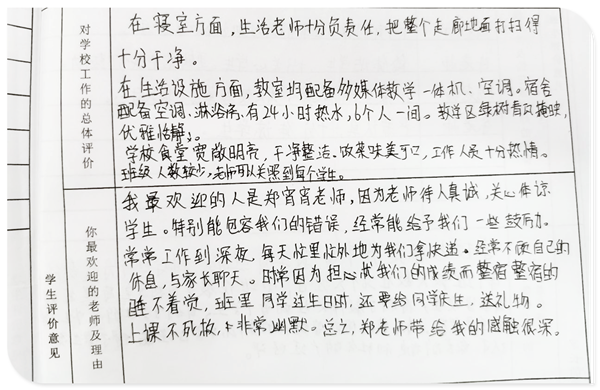 对学校工作的总体评价
在寝室方面，生活老师十分负责任，把整个走廊地面打扫得
十分干净。
在生活设施方面，教室均配备多媒体教学一体机、空调。宿舍
配备空调、淋浴房、有24小时热水，6个人一间。教学区绿树青瓦掩映，
优雅恬静。
学校食堂宽敞明亮，干净整洁、饭菜味美可口，工作人员十分热情。
班级人数较少，老师可以关照到每个学生。
学生评价意见
你最欢迎的老师及理由
我最欢迎的人是郑宵宵老师，因为老师待人真诚，关心体谅
学生。特别能包容我们的错误，经常能给予我们一些鼓励。
常常工作到深夜，每天忙里忙外地为我们拿快递。经常不顾自己的
休息，与家长聊天。时常因为担心忧我们的成绩而整宿整宿的
睡不着觉，班里同学过生日时，还要给同学庆生，送礼物。
上课不死板，非常幽默。总之，郑老师带给我的感触很深。